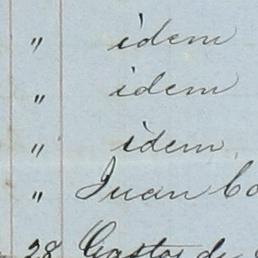 " idem
" idem
" idem
" Juan Co
28 Gastos de